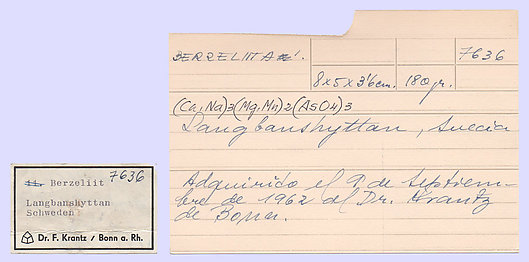 BERZELIITA
7636
8x5x3'6cm. 180gr.
(Ca,Na)3(Mg.Mn)2(AsO4)3
Langbanshyttan, Suecia
Adquirido el 9 de septiem-
bre de 1962 al Dr. Krantz
de Bonn.
7636
Berzeliit
Langbanshyttan
Schweden
Dr. F. Krantz / Bonn a. Rh.